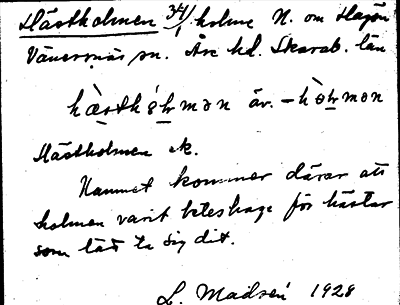 Hästholmen 34/1 holme N. om Hagön
Vänersnäs sn. Åse hd. Skarab. län
hæ̀sthò̱l̥mən äv. -hò̱l̥mən
Hästholmen ek.
Namnet kommer därav att
holmen varit beteshage för hästar
som låt ta sig dit.
L. Madsén 1928